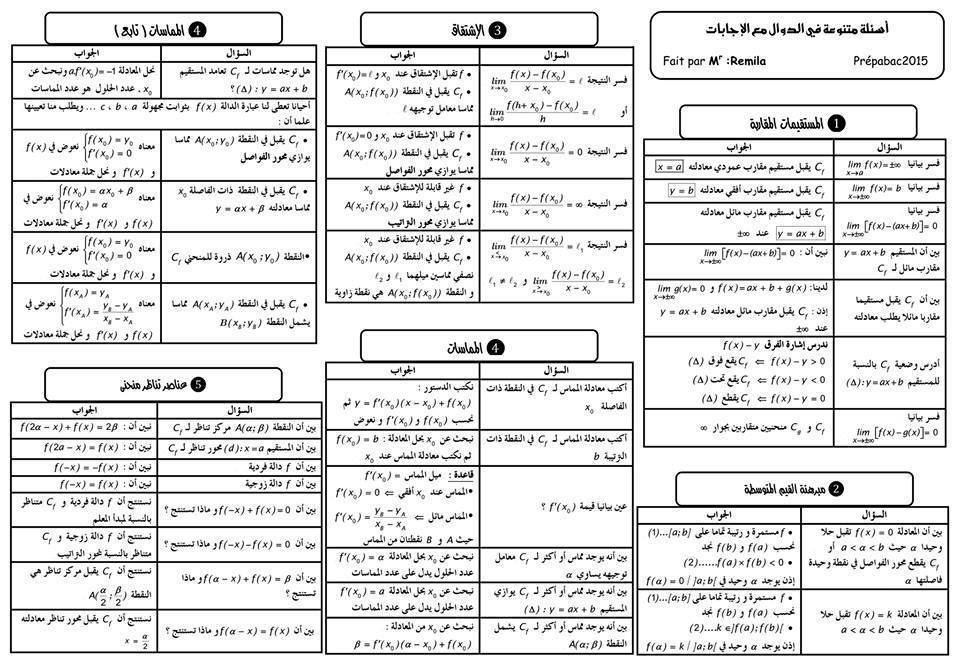 أسئلة متنوعة في الدوال مع الإجابات
Fait par Mʳ :Remila Prépabac2015
❶ المستقيمات المقاربة
السؤال الجواب
فسر بيانيا lim f(x)=±∞ x→a
C_f يقبل مستقيم مقارب عمودي معادلته x = a
فسر بيانيا lim f(x)= b x→±∞
C_f يقبل مستقيم مقارب أفقي معادلته y = b
فسر بيانيا
lim [f(x)-(ax+b)]=0 x→±∞
C_f يقبل مستقيم مقارب مائل معادلته
y = ax + b عند ±∞
بين أن المستقيم y = ax+b
مقارب مائل لـ C_f
نبين أن : lim [f(x)-(ax+b)]=0 x→±∞
بين أن C_f يقبل مستقيما
مقاربا مائلا يطلب معادلته
لدينا: f(x)=ax+b+g(x) و lim g(x)=0 x→±∞
إذن : C_f يقبل مقارب مائل معادلته y = ax+b
عند ±∞
أدرس وضعية C_f بالنسبة
للمستقيم (Δ):y=ax+b
ندرس إشارة الفرق f(x)-y
f(x)-y > 0 ⇐ C_f يقع فوق (Δ)
f(x)-y < 0 ⇐ C_f يقع تحت (Δ)
f(x)-y = 0 ⇐ C_f يقطع (Δ)
فسر بيانيا
lim [f(x)-g(x)]=0 x→±∞
C_f و C_g منحنيين متقاربين بجوار ∞
❷ مبرهنة القيم المتوسطة
السؤال الجواب
بين أن المعادلة f(x)=0 تقبل حلا
وحيدا α حيث a<α<b أو
C_f يقطع محور الفواصل في نقطة وحيدة
فاصلتها α
• f مستمرة و رتيبة تماما على [a;b]...(1)
نحسب f(a) و f(b) نجد
f(a)×f(b)<0......(2)
إذن يوجد α وحيد في ]a;b[ / f(α)=0
بين أن المعادلة f(x)=k تقبل حلا
وحيدا α حيث a<α<b
• f مستمرة و رتيبة تماما على [a;b]...(1)
نحسب f(a) و f(b) نجد
• k∈]f(a);f(b)[....(2)
إذن يوجد α وحيد في ]a;b[ / f(α)=k
❸ الإشتقاق
السؤال الجواب
فسر النتيجة lim (f(x)-f(x₀))/(x-x₀) = ℓ x→x₀
أو lim (f(h+x₀)-f(x₀))/h = ℓ h→0
• f تقبل الإشتقاق عند x₀ و f'(x₀)=ℓ
• C_f يقبل في النقطة A(x₀;f(x₀))
مماسا معامل توجيهه ℓ
فسر النتيجة lim (f(x)-f(x₀))/(x-x₀) = 0 x→x₀
• f تقبل الإشتقاق عند x₀ و f'(x₀)=0
• C_f يقبل في النقطة A(x₀;f(x₀))
مماسا يوازي محور الفواصل
فسر النتيجة lim (f(x)-f(x₀))/(x-x₀) = ∞ x→x₀
• f غير قابلة للإشتقاق عند x₀
• C_f يقبل في النقطة A(x₀;f(x₀))
مماسا يوازي محور التراتيب
فسر النتيجة lim (f(x)-f(x₀))/(x-x₀) = ℓ₁
و lim (f(x)-f(x₀))/(x-x₀) = ℓ₂ و ℓ₁ ≠ ℓ₂
• f غير قابلة للإشتقاق عند x₀
• C_f يقبل في النقطة A(x₀;f(x₀))
نصفي مماسين ميلهما ℓ₁ و ℓ₂
و النقطة A(x₀;f(x₀)) هي نقطة زاوية
❹ المماسات
السؤال الجواب
أكتب معادلة المماس لـ C_f في النقطة ذات
الفاصلة x₀
نكتب الدستور :
y = f'(x₀)(x-x₀)+f(x₀) ثم
نحسب f(x₀) و f'(x₀) و نعوض
أكتب معادلة المماس لـ C_f في النقطة ذات
الترتيبة b
نبحث عن x₀ بحل المعادلة : f(x₀)=b
ثم نكتب معادلة المماس عند x₀
عين بيانيا قيمة f'(x₀) ؟
قاعدة : ميل المماس = f'(x₀)
•المماس عند x₀ أفقي ⇐ f'(x₀)=0
•المماس مائل ⇐ f'(x₀) = (y_B-y_A)/(x_B-x_A)
حيث A و B نقطتان من المماس
بين أنه يوجد مماس أو أكثر لـ C_f معامل
توجيهه يساوي α
نبحث عن x₀ بحل المعادلة f'(x₀)=α
عدد الحلول يدل على عدد المماسات
بين أنه يوجد مماس أو أكثر لـ C_f يوازي
المستقيم (Δ):y=ax+b
نبحث عن x₀ بحل المعادلة f'(x₀)=a
عدد الحلول يدل على عدد المماسات
بين أنه يوجد مماس أو أكثر لـ C_f يشمل
النقطة A(α;β)
نبحث عن x₀ من المعادلة :
β = f'(x₀)(α-x₀)+f(x₀)
❹ المماسات ( تابع )
السؤال الجواب
هل توجد مماسات لـ C_f تعامد المستقيم
(Δ):y=ax+b ؟
نحل المعادلة af'(x₀)=-1 ونبحث عن
x₀ . عدد الحلول هو عدد المماسات
أحيانا تعطى لنا عبارة الدالة f(x) بثوابت مجهولة a ، b ، c ... ويطلب منا تعيينها
علما أن :
• C_f يقبل في النقطة A(x₀;y₀) مماسا
يوازي محور الفواصل
معناه {f(x₀)=y₀ f'(x₀)=0 نعوض في f(x)
و f'(x) و نحل جملة معادلات
• C_f يقبل في النقطة ذات الفاصلة x₀
مماسا معادلته y=αx+β
معناه {f(x₀)=αx₀+β f'(x₀)=α نعوض في
f(x) و f'(x) و نحل جملة معادلات
•النقطة A(x₀;y₀) ذروة للمنحني C_f
معناه {f(x₀)=y₀ f'(x₀)=0 نعوض في f(x)
و f'(x) و نحل جملة معادلات
• C_f يقبل في النقطة A(x_A;y_A) مماسا
يشمل النقطة B(x_B;y_B)
معناه {f(x_A)=y_A f'(x_A)=(y_B-y_A)/(x_B-x_A) نعوض في
f(x) و f'(x) و نحل جملة معادلات
❺ عناصر تناظر منحنى
السؤال الجواب
بين أن النقطة A(α;β) مركز تناظر لـ C_f
نبين أن : f(2α-x)+f(x)=2β
بين أن المستقيم (d):x=a محور تناظر لـ C_f
نبين أن : f(2a-x)=f(x)
بين أن f دالة فردية
نبين أن : f(-x)=-f(x)
بين أن f دالة زوجية
نبين أن : f(-x)=f(x)
بين أن f(-x)+f(x)=0 و ماذا تستنتج ؟
نستنتج أن f دالة فردية و C_f متناظر
بالنسبة لمبدأ المعلم
بين أن f(-x)-f(x)=0 و ماذا تستنتج ؟
نستنتج أن f دالة زوجية و C_f
متناظر بالنسبة لمحور التراتيب
بين أن f(α-x)+f(x)=β و ماذا
تستنتج ؟
نستنتج أن C_f يقبل مركز تناظر هي
النقطة A(α/2;β/2)
بين أن f(α-x)=f(x) و ماذا تستنتج ؟
نستنتج أن C_f يقبل محور تناظر معادلته
x = α/2